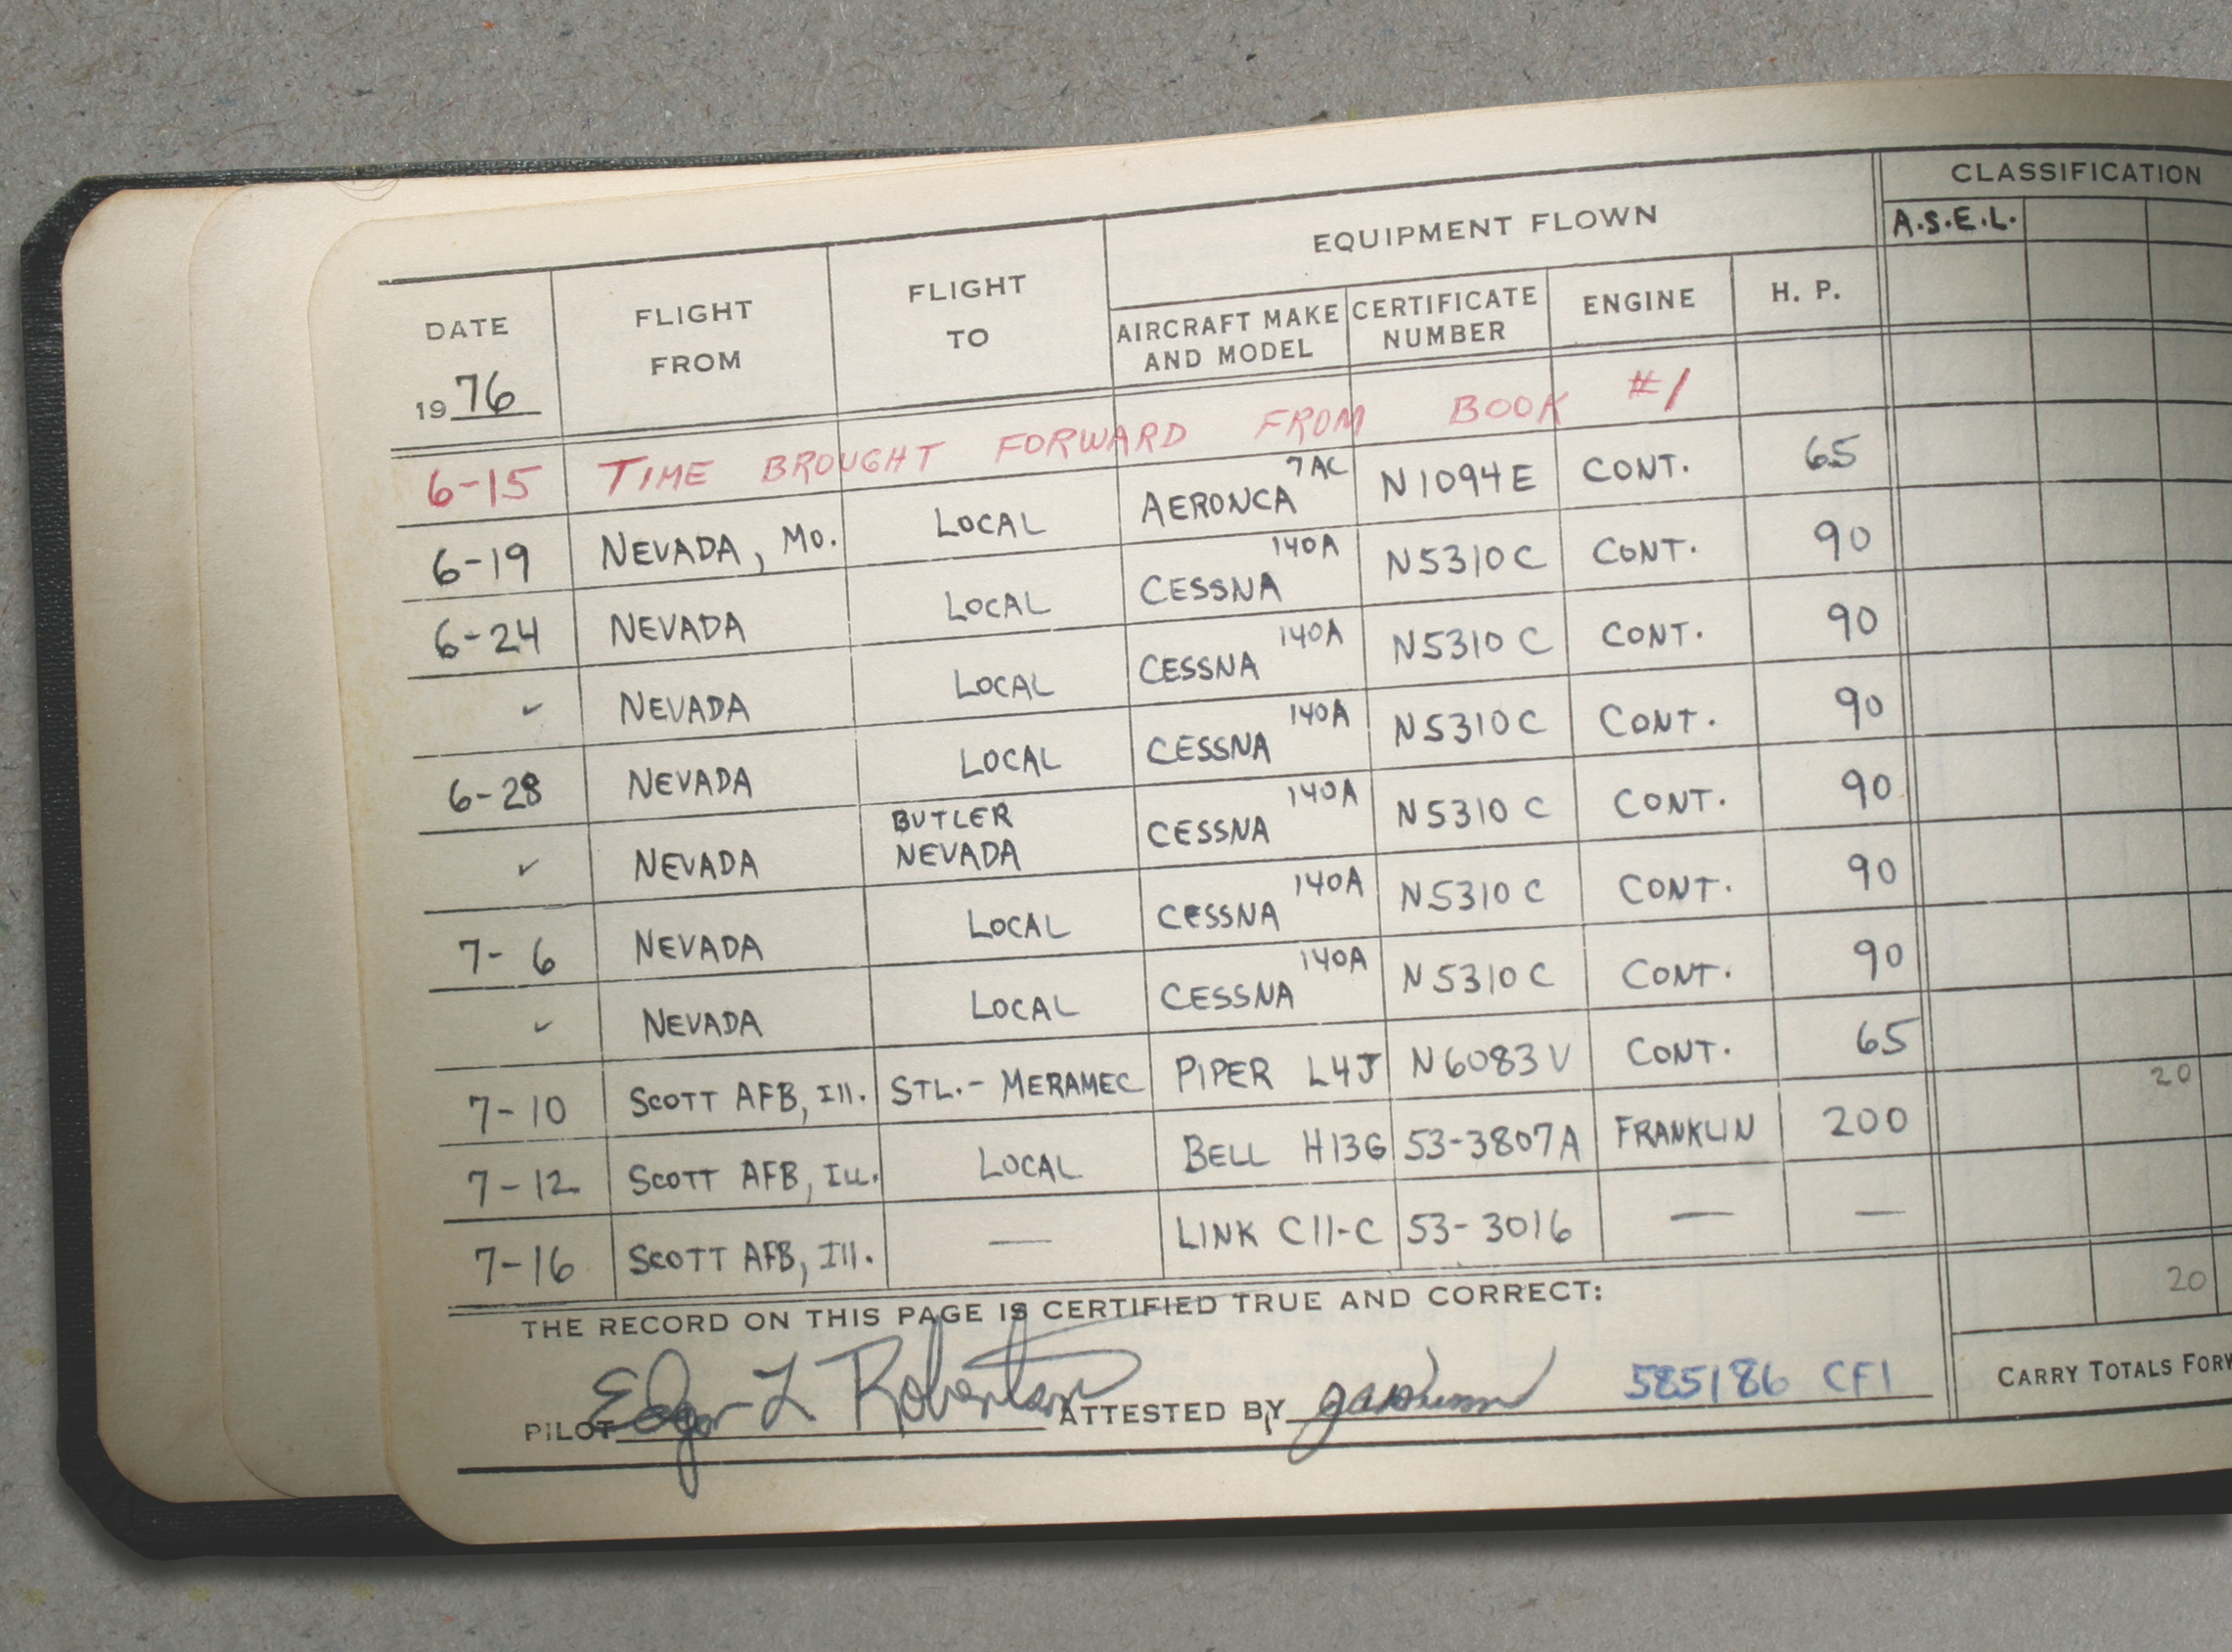 CLASSIFICATION
EQUIPMENT FLOWN
A.S.E.L.
DATE
FLIGHT FROM
FLIGHT TO
AIRCRAFT MAKE AND MODEL
CERTIFICATE NUMBER
ENGINE
H. P.
1976
6-15 TIME BROUGHT FORWARD FROM BOOK #1
6-19 NEVADA, MO. LOCAL AERONCA 7AC N1094E CONT. 65
6-24 NEVADA LOCAL CESSNA 140A N5310C CONT. 90
✓ NEVADA LOCAL CESSNA 140A N5310C CONT. 90
6-28 NEVADA LOCAL CESSNA 140A N5310C CONT. 90
✓ NEVADA BUTLER NEVADA CESSNA 140A N5310C CONT. 90
7-6 NEVADA LOCAL CESSNA 140A N5310C CONT. 90
✓ NEVADA LOCAL CESSNA 140A N5310C CONT. 90
7-10 SCOTT AFB, Ill. STL.- MERAMEC PIPER L4J N6083V CONT. 65
7-12 SCOTT AFB, ILL. LOCAL BELL H13G 53-3807A FRANKLIN 200 20
7-16 SCOTT AFB, Ill. — LINK C11-C 53-3016 — —
20
THE RECORD ON THIS PAGE IS CERTIFIED TRUE AND CORRECT:
PILOT Edgar L Robertson ATTESTED BY 585186 CFI
CARRY TOTALS FORW